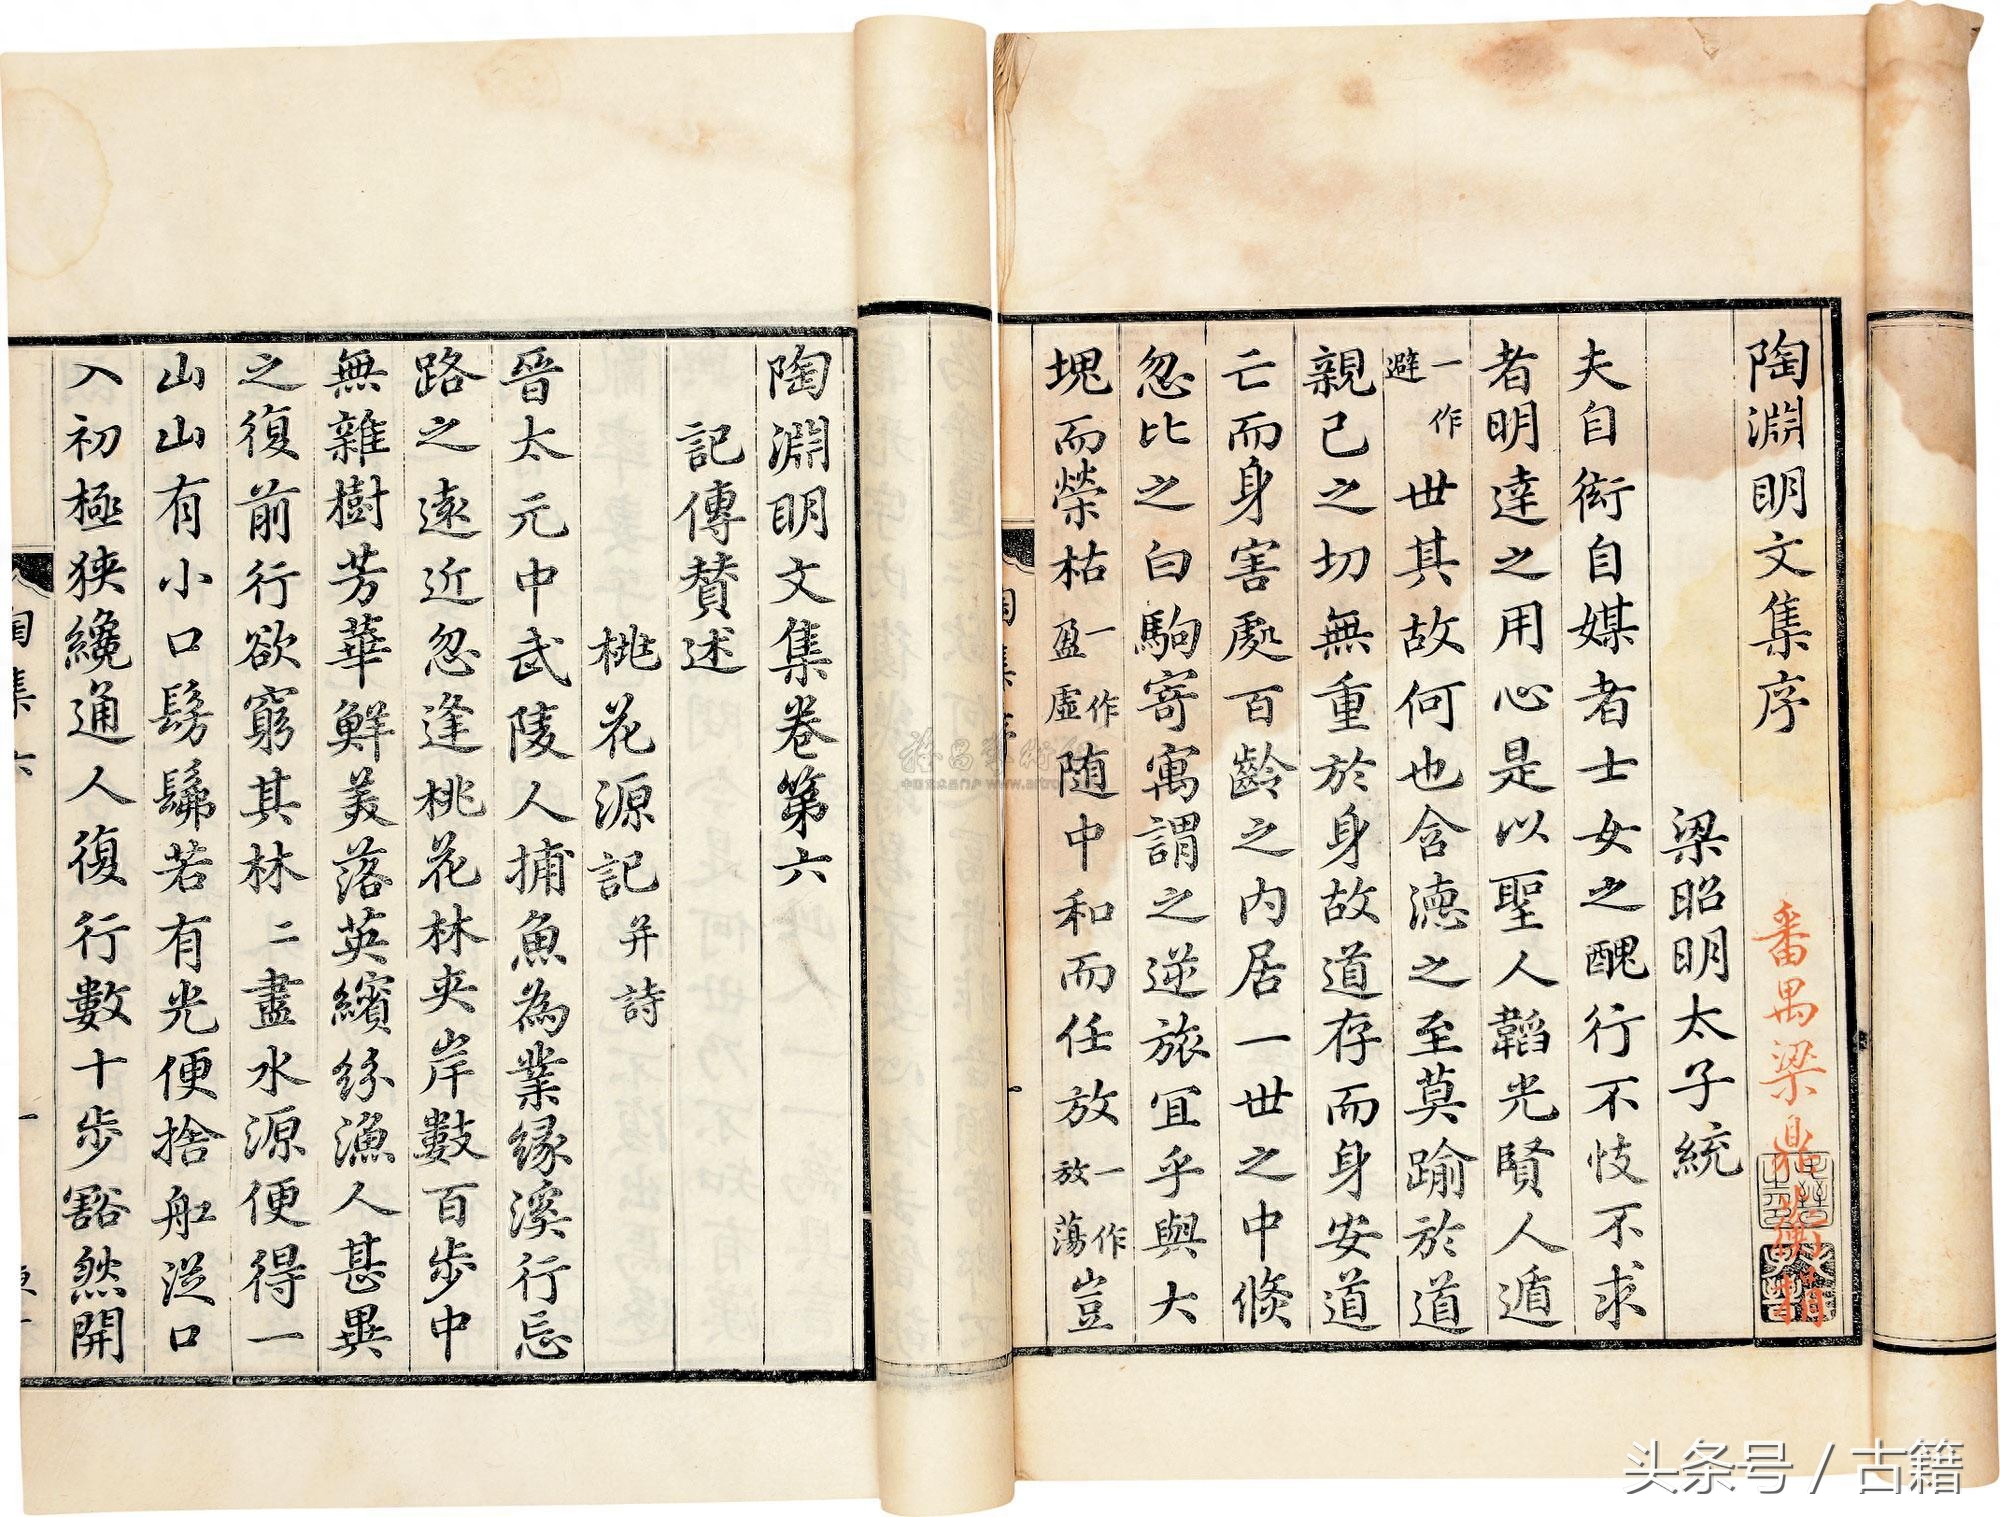 陶淵明文集序
番禺梁鼎
梁昭明太子統
夫自衒自媒者士女之醜行不忮不求
者明達之用心是以聖人韜光賢人遁
一作避世其故何也含德之至莫踰於道
親己之切無重於身故道存而身安道
亡而身害處百齡之內居一世之中倏
忽比之白駒寄寓謂之逆旅宜乎與大
塊而榮枯一作盈虛随中和而任放一作放蕩豈
陶淵明文集卷第六
記傳賛述
桃花源記并詩
晉太元中武陵人捕魚為業緣溪行忘
路之遠近忽逢桃花林夾岸數百步中
無雜樹芳華鮮美落英繽紛漁人甚異
之復前行欲窮其林二盡水源便得一
山山有小口髣髴若有光便捨舡従口
入初極狹纔通人復行數十步豁然開
陶集六
一
头条号 / 古籍